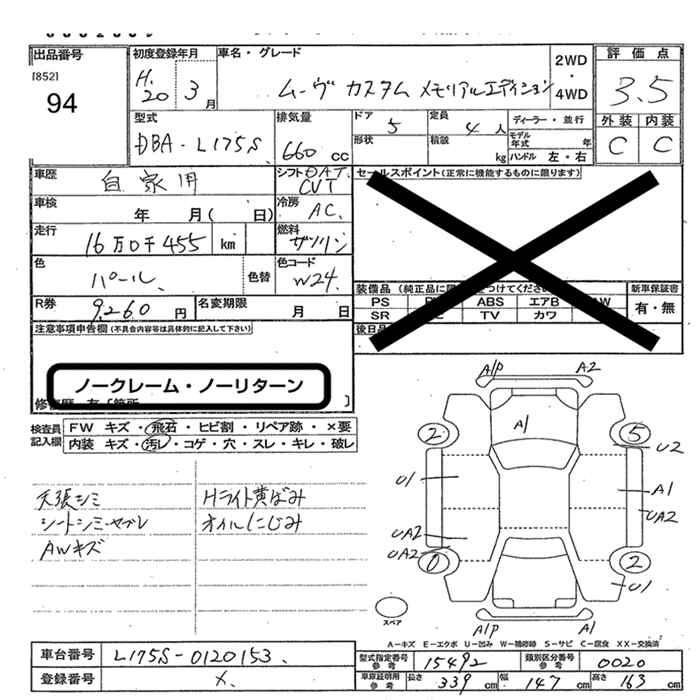 出品番号
[852]
94
初度登録年月
H.20 3月
車名・グレード
ムーヴ カスタム メモリアルエディション
2WD・4WD
評価点
3.5
外装 内装
C C
型式
DBA-L175S
排気量
660 cc
ドア 5
形状
定員 4人
積載 kg
ディーラー・並行
モデル年式 年
ハンドル 左・右
車歴 自家用
シフト OAT. CVT
車検 年 月( 日)
冷房 AC.
走行 16万0千455 km
燃料 ガソリン
色 パール
色替
色コード W24.
R券 9,260 円
名変期限 月 日
セールスポイント(正常に機能するものに限ります)
新車保証書
有・無
PS ABS エアB
SR TV カワ
注意事項申告欄(不具合内容等は具体的に記入して下さい)
ノークレーム・ノーリターン
検査員記入欄
FW キズ・飛石・ヒビ割・リペア跡・×要
内装 キズ・汚レ・コゲ・穴・スレ・キレ・破レ
天張シミ
シートシミ・ヤブレ
AWキズ
Hライト黄ばみ
オイルにじみ
A1P A2
A1
2 5
U2
U1
A1
UA2
UA2
UA2
0 2
U1
A1P A1
スペア
A-キズ E-エクボ U-凹み W-補修跡 S-サビ C-腐食 XX-交換済
車台番号 L175S-0120153
登録番号 ×
型式指定番号参考 15492
類別区分番号参考 0020
車庫証明用参考 長さ 339 cm 幅 147 cm 高さ 163 cm